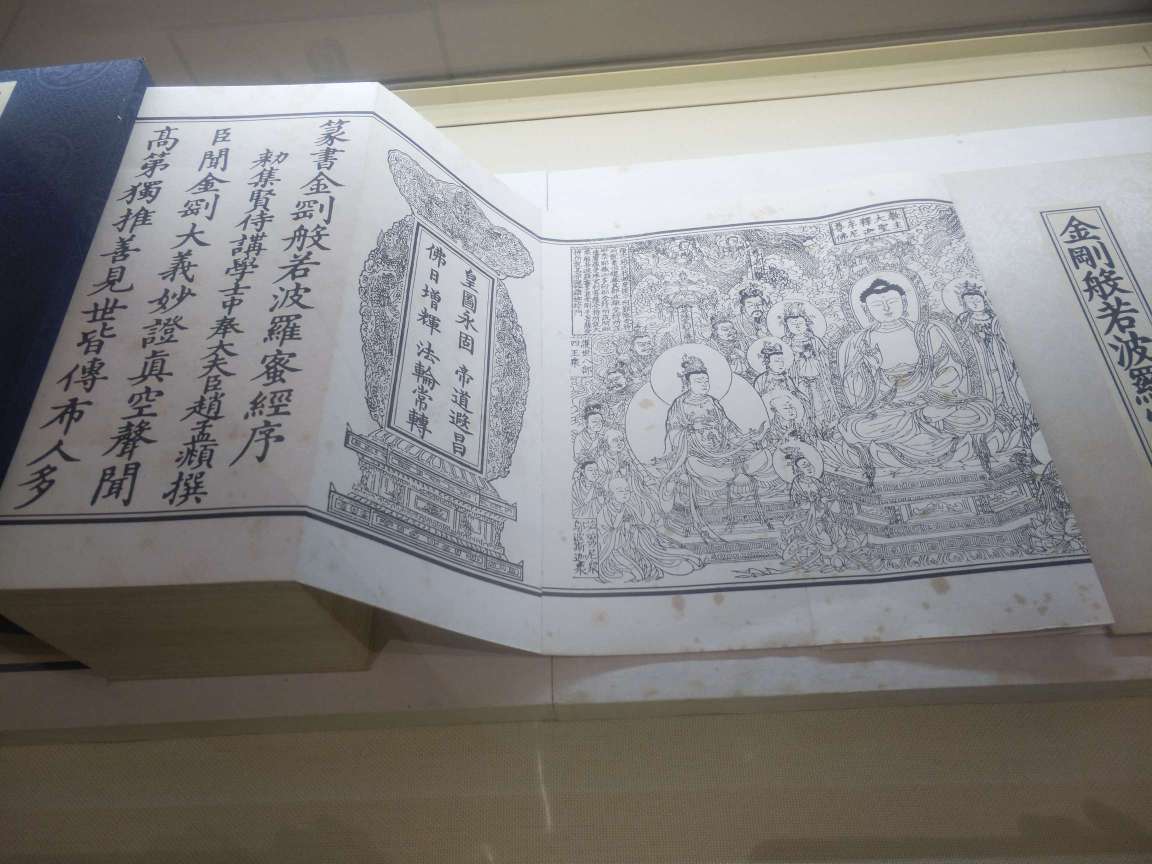 金剛般若波羅
教主大聖釋迦牟尼
四王衆
皇圖永固 帝道遐昌
佛日增輝 法輪常轉
篆書金剛般若波羅蜜經序
勑集賢侍講學士中奉大夫臣趙孟頫撰
臣聞金剛大義妙證眞空聲聞
高第獨推善見世皆傳布人多